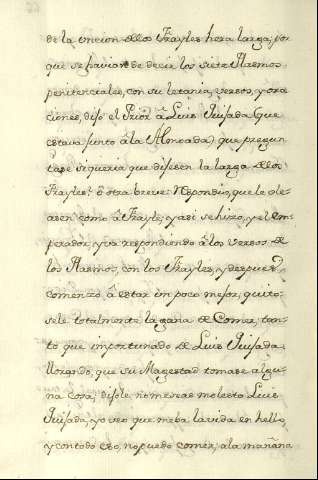 de la uncion de los Frayles hera larga, por
que se havian de decir los siete Psalmos
penitenciales, con su letania, versos, y ora
ciones, dijo el Prior à Luis Quijada (que
estava junto à la Almoada) que pregun
tase si queria que dijesen la larga de los
Frayles, ò otra breve: Respondio, que le ole
asen como à Frayle, y asi se hizo, y el Em
perador, yva respondiendo à los versos de
los Psalmos, con los Frayles, y despues
comenzò à estar un poco mejor, quito
sele totalmente la gana de Comer, tan
to que importunado de Luis Quijada,
llorando, que su Magestad tomase algu
na cosa; dijole no me seas molesto Luis
Quijada, yo veo que me ba la vida en hello,
y con todo eso, no puedo comer; a la mañana